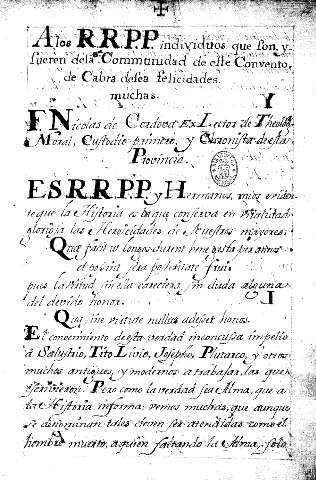 A los R.R.P.P. individuos que son, y
fueren de la Communidad de este Convento,
de Cabra desea felicidades
muchas.
F. Nicolas de Cordova Ex Lector de Theolog.
Moral, Custodio primero, y Chronista de esta
Provincia.
ES R.R.P.P. y Hermanos, mios eviden
te que la Historia es la que conserva en
gloriosa las Heroicidades de Nuestros mayores:
Quae facit ut longos durent bene gesta per annos
et possint sera posteritate frui
pues la Virtud sin ella careciera sin duda alguna
del devido honor.
Qua sine virtute nullus adesset honos.
El conocimiento de esta verdad inconcussa impelió
à Salustio, Tito Livio, Josepho, Plutarco, y otros
muchos antiguos, y modernos a trabajar, las que
escrivieron. Pero como la verdad sea Alma, que a
la Historia informa: vemos muchas, que aunque
se denominan tales deven ser atendidas como el
hombre muerto, a quien faltando la Alma, solo